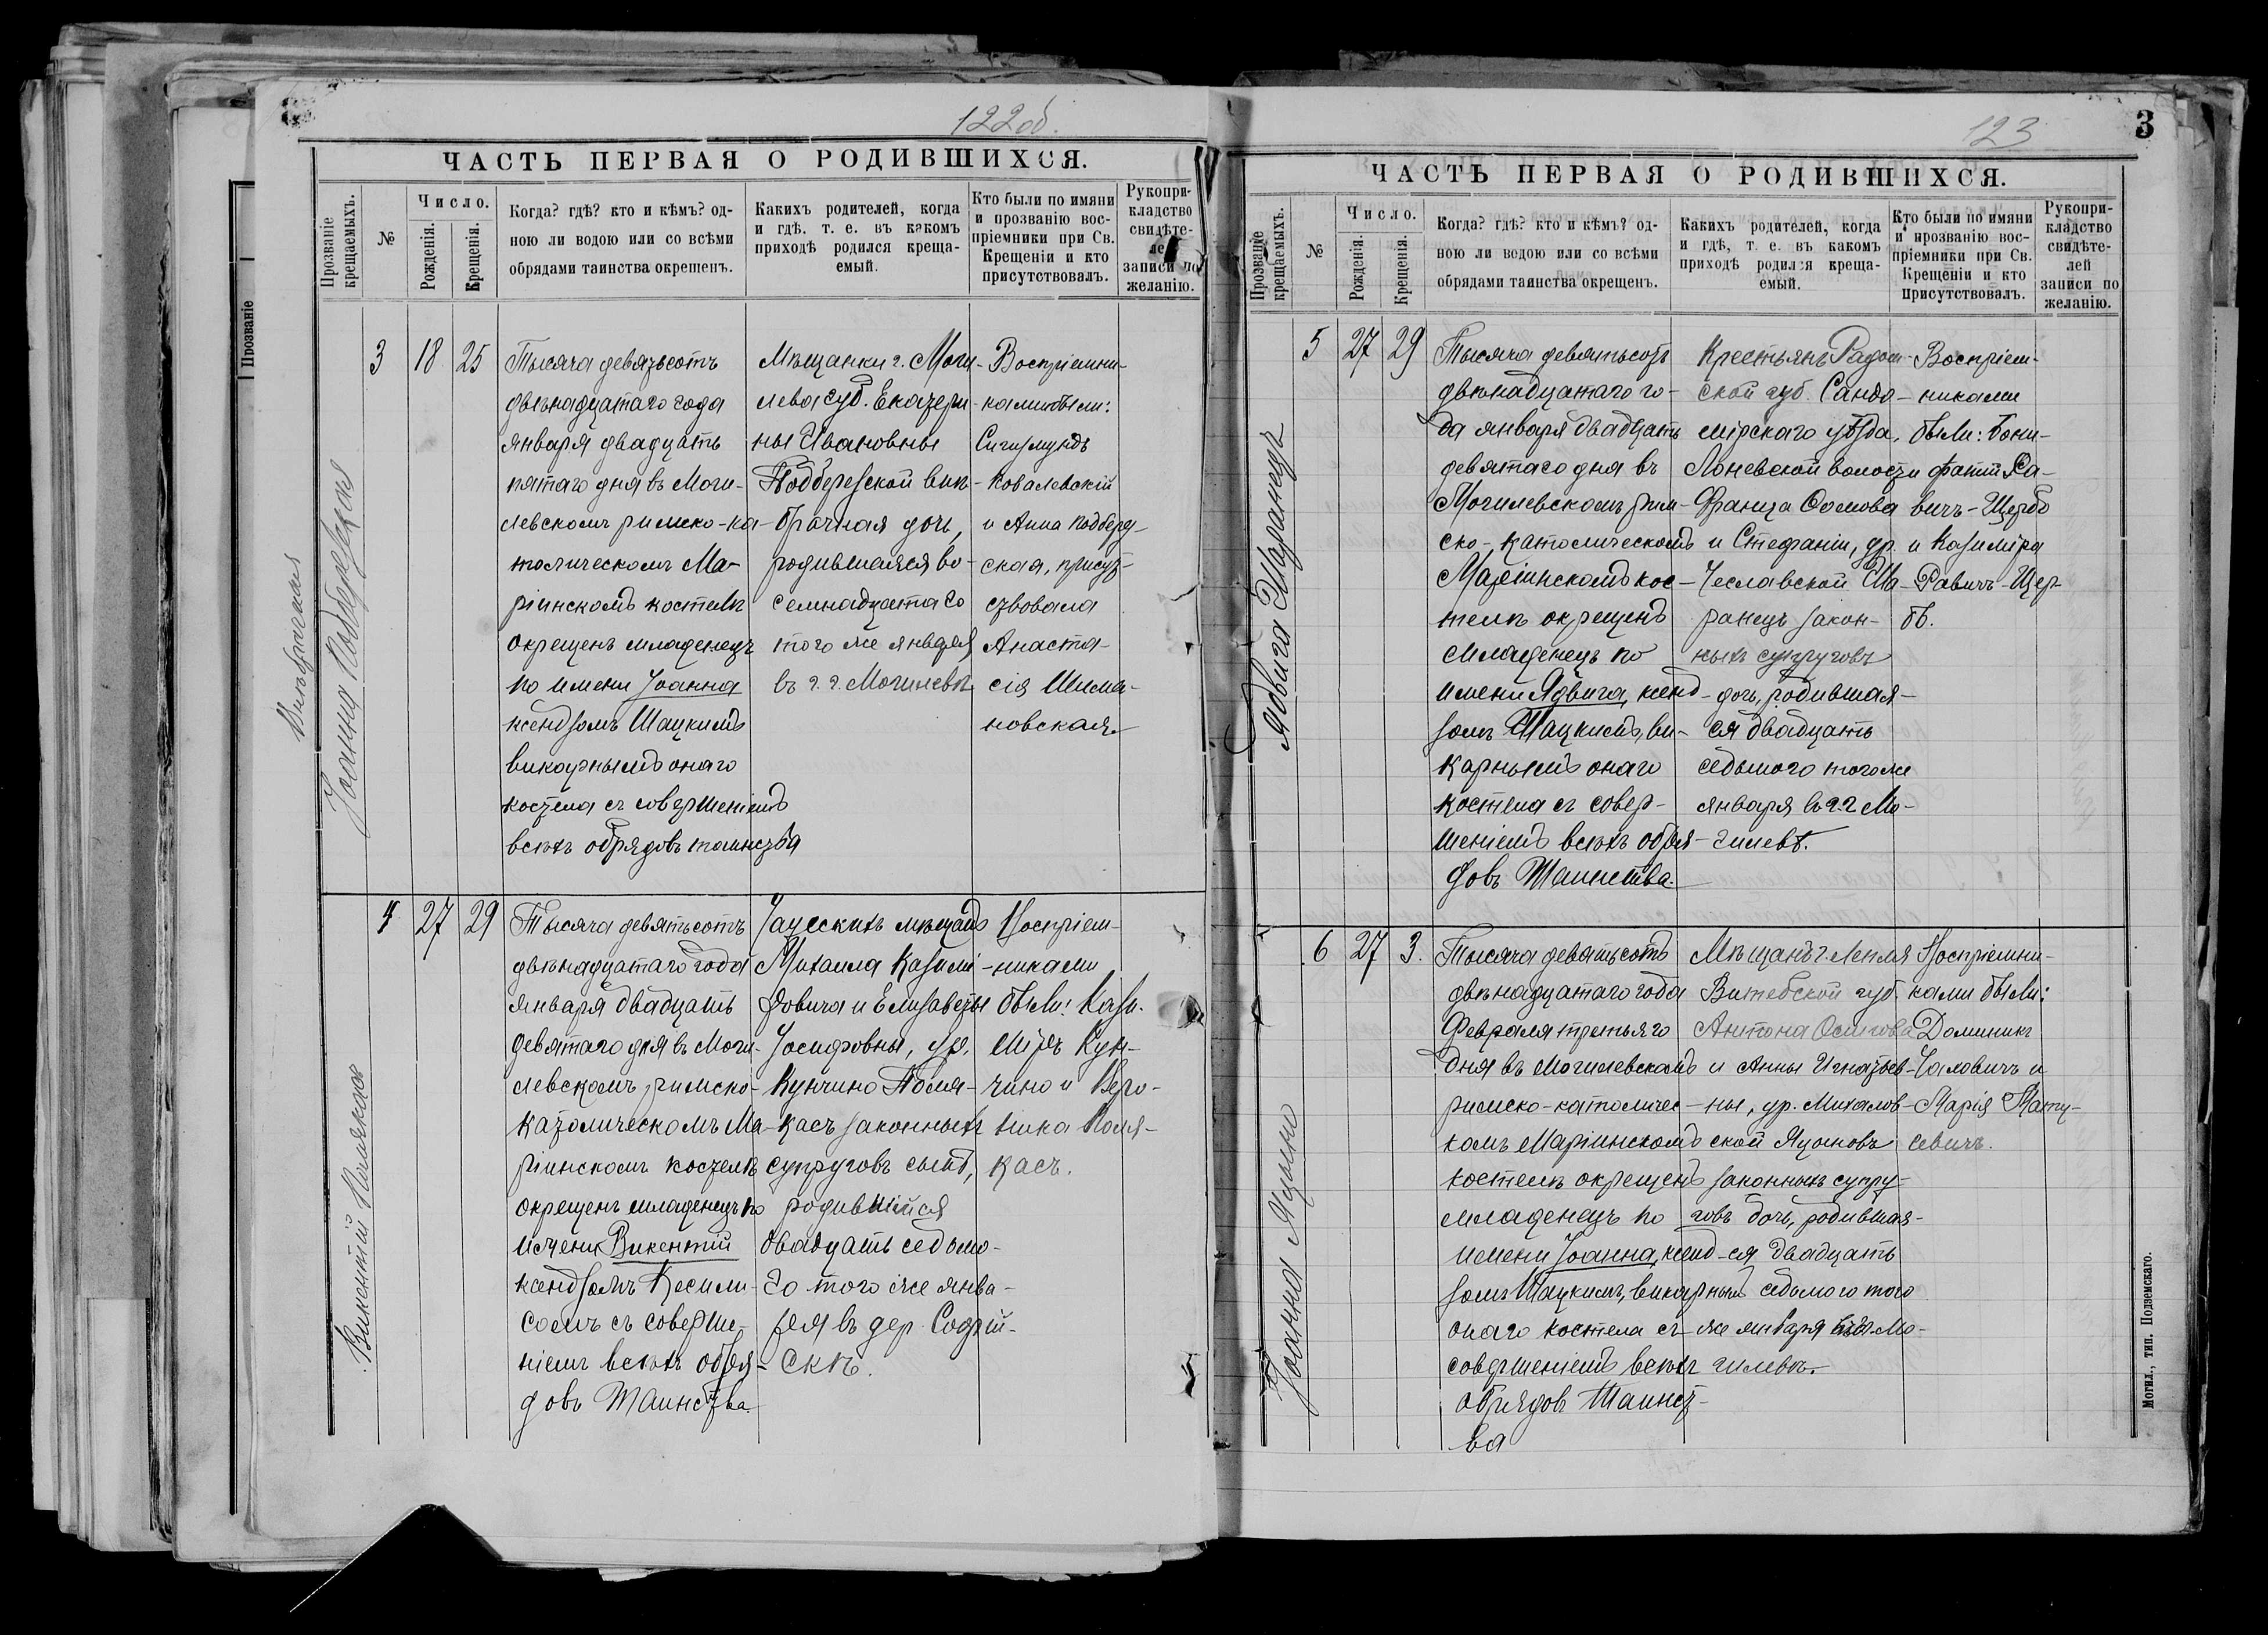 122 об.
ЧАСТЬ ПЕРВАЯ О РОДИВШИХСЯ.
Прозваніе крещаемыхъ.
№
Число.
Рожденія.
Крещенія.
Когда? гдѣ? кто и кѣмъ? од-
ною ли водою или со всѣми
обрядами таинства окрещенъ.
Какихъ родителей, когда
и гдѣ. т. е. въ какомъ
приходѣ родился креща-
емый.
Кто были по имяни
и прозванію вос-
пріемники при Св.
Крещеніи и кто
присутствовалъ.
Рукопри-
кладство
свидѣте-
лей
записи по
желанію.
Прозваніе
Внѣбрачная
Іоанна Подберезская
3
18
25
Тысяча девятьсотъ
двѣнадцатаго года
января двадцать
пятаго дня въ Моги-
левскомъ римско-ка-
толическомъ Ма-
ріинскомъ костелѣ
окрещенъ младенецъ
по имени Іоанна
ксендзомъ Шацкимъ
викарнымъ онаго
костела съ совершеніемъ
всѣхъ обрядовъ таинства
Мѣщанки г. Моги-
лева губ. Екатери-
ны Ивановны
Подберезской внѣ-
брачная дочь,
родившаяся во-
семнадцатаго
того же января
въ г. г. Могилевѣ
Воспріемни-
ками были:
Сигизмундъ
Ковалевскій
и Анна Подберез-
ская, присут-
ствовала
Анаста-
сія Шима-
новская.
Викентій Полякасъ
4
27
29
Тысяча девятьсотъ
двѣнадцатаго года
января двадцать
девятаго дня въ Моги-
левскомъ римско-
католическомъ Ма-
ріинскомъ костелѣ
окрещенъ младенецъ по
имени Викентій
ксендзомъ
совершe-
ніемъ всѣхъ обря-
довъ Таинства.
мѣщанъ
Михаила Казими-
ровича и Елизаветы
Іосифовны, ур.
Кунчино Поля-
касъ законныхъ
супруговъ сынъ,
родившійся
двадцать седьмо-
го того же янва-
ря въ дер.
скѣ.
Воспріем-
никами
были: Кази-
міръ Кун-
чино и Веро-
ника Поля-
касъ.
123
3
ЧАСТЬ ПЕРВАЯ О РОДИВШИХСЯ.
Прозваніе крещаемыхъ.
№
Число.
Рожденія.
Крещенія.
Когда? гдѣ? кто и кѣмъ? од-
ною ли водою или со всѣми
обрядами таинства окрещенъ.
Какихъ родителей, когда
и гдѣ, т. е. въ какомъ
приходѣ родился креща-
емый.
Кто были по имяни
и прозванію вос-
пріемники при Св.
Крещеніи и кто
присутствовалъ.
Рукопри-
кладство
свидѣте-
лей
записи по
желанію.
Ядвига Маранецъ
5
27
29
Тысяча девятьсотъ
двѣнадцатаго го-
да января двадцать
девятаго дня въ
Могилевскомъ рим-
ско-католическомъ
Маріинскомъ кос-
телѣ окрещенъ
младенецъ по
имени Ядвига, ксенд-
зомъ Шацкимъ, ви-
карнымъ онаго
костела съ совер-
шеніемъ всѣхъ обря-
довъ Таинства.
Крестьянъ Радом-
ской губ. Сандо-
мірскаго уѣзда,
Лоневской волости
Франца Фомова
и Стефаніи, ур.
Чеславской Ма-
ранецъ закон-
ныхъ супруговъ
дочь, родившая-
ся двадцать
седьмого того же
января въ г. г. Мо-
гилевѣ.
Воспріем-
никами
были: Бони-
фатій Ра-
вичъ-Щербо
и Казимира
Равичъ-Щер-
бъ.
Іоанна Яцыно
6
27
3.
Тысяча девятьсотъ
двѣнадцатаго года
Февраля третьяго
дня въ Могилевскомъ
римско-католичес-
комъ Маріинскомъ
костелѣ окрещенъ
младенецъ по
имени Іоанна, ксенд-
зомъ Шацкимъ, викарнымъ
онаго костела съ
совершеніемъ всѣхъ
обрядовъ Таинст-
ва
Мѣщанъ г. Лепля
Витебской губ.
Антона Осипова
и Анны Игнатьев-
ны, ур. Михалов-
ской Яцыновъ
законныхъ супру-
говъ дочь, родившая-
ся двадцать
седьмого того
же января въ г. Мо-
гилевѣ.
Воспріемни-
ками были:
Доминикъ
Чаловичъ и
Марія Мату-
севичъ.
Могил., тип. Подземскаго.